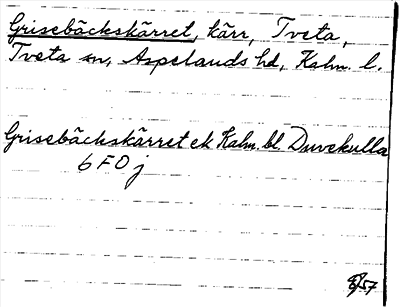 Grisebäckskärret, kärr, Tveta,
Tveta sn, Aspelands hd, Kalm. l.
Grisebäckskärret ek Kalm. bl. Duvekulla
6 F 0 j